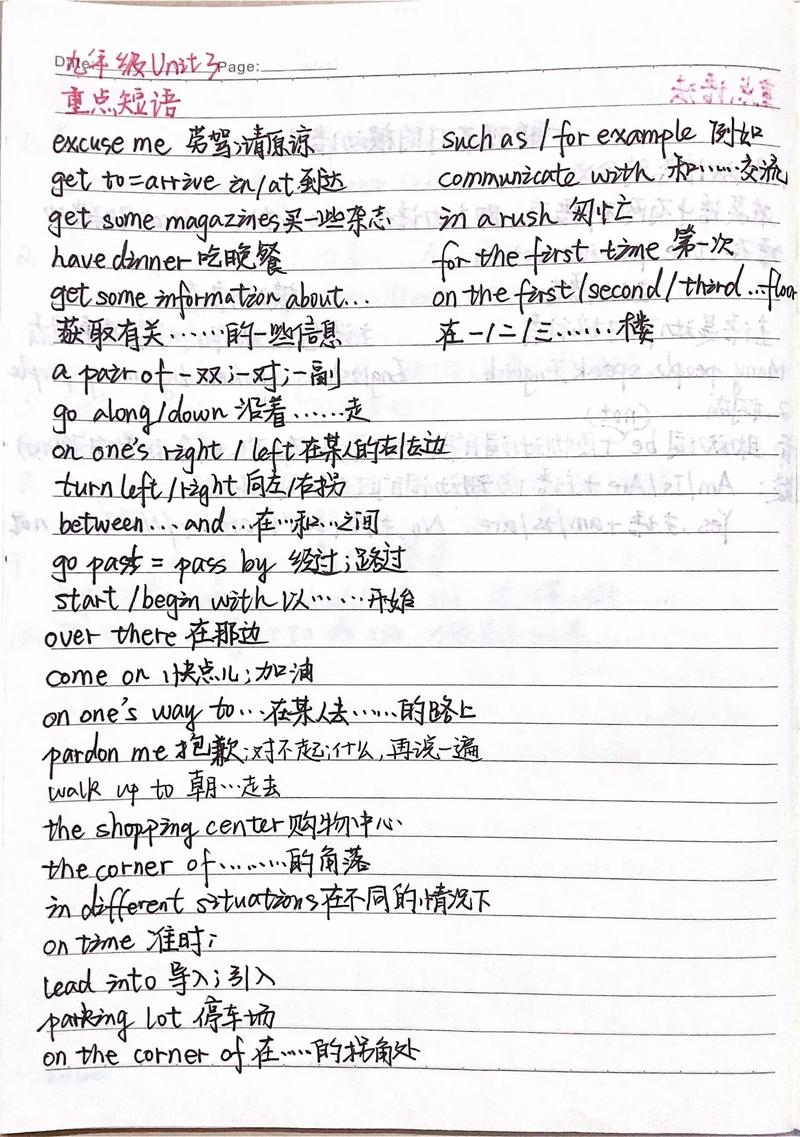 Date: 九年级Unit 3 Page:
重点短语
excuse me 劳驾;请原谅
get to=arrive in/at到达
get some magazines买一些杂志
have dinner 吃晚餐
get some information about...
获取有关……的一些信息
a pair of 一双;一对;一副
go along/down 沿着……走
on one's right / left在某人的右/左边
turn left/right 向左/右拐
between...and...在…和…之间
go past = pass by 经过;路过
start /begin with 以……开始
over there 在那边
come on 快点儿;加油
on one's way to…在某人去……的路上
pardon me 抱歉;对不起;什么,再说一遍
walk up to 朝…走去
the shopping center购物中心
the corner of………的角落
in different situations在不同的情况下
on time 准时;
lead into 导入;引入
parking lot 停车场
on the corner of 在……的拐角处
such as / for example 例如
communicate with 和……交流
in a rush 匆忙
for the first time 第一次
on the first/second/third...floor
在一/二/三……楼